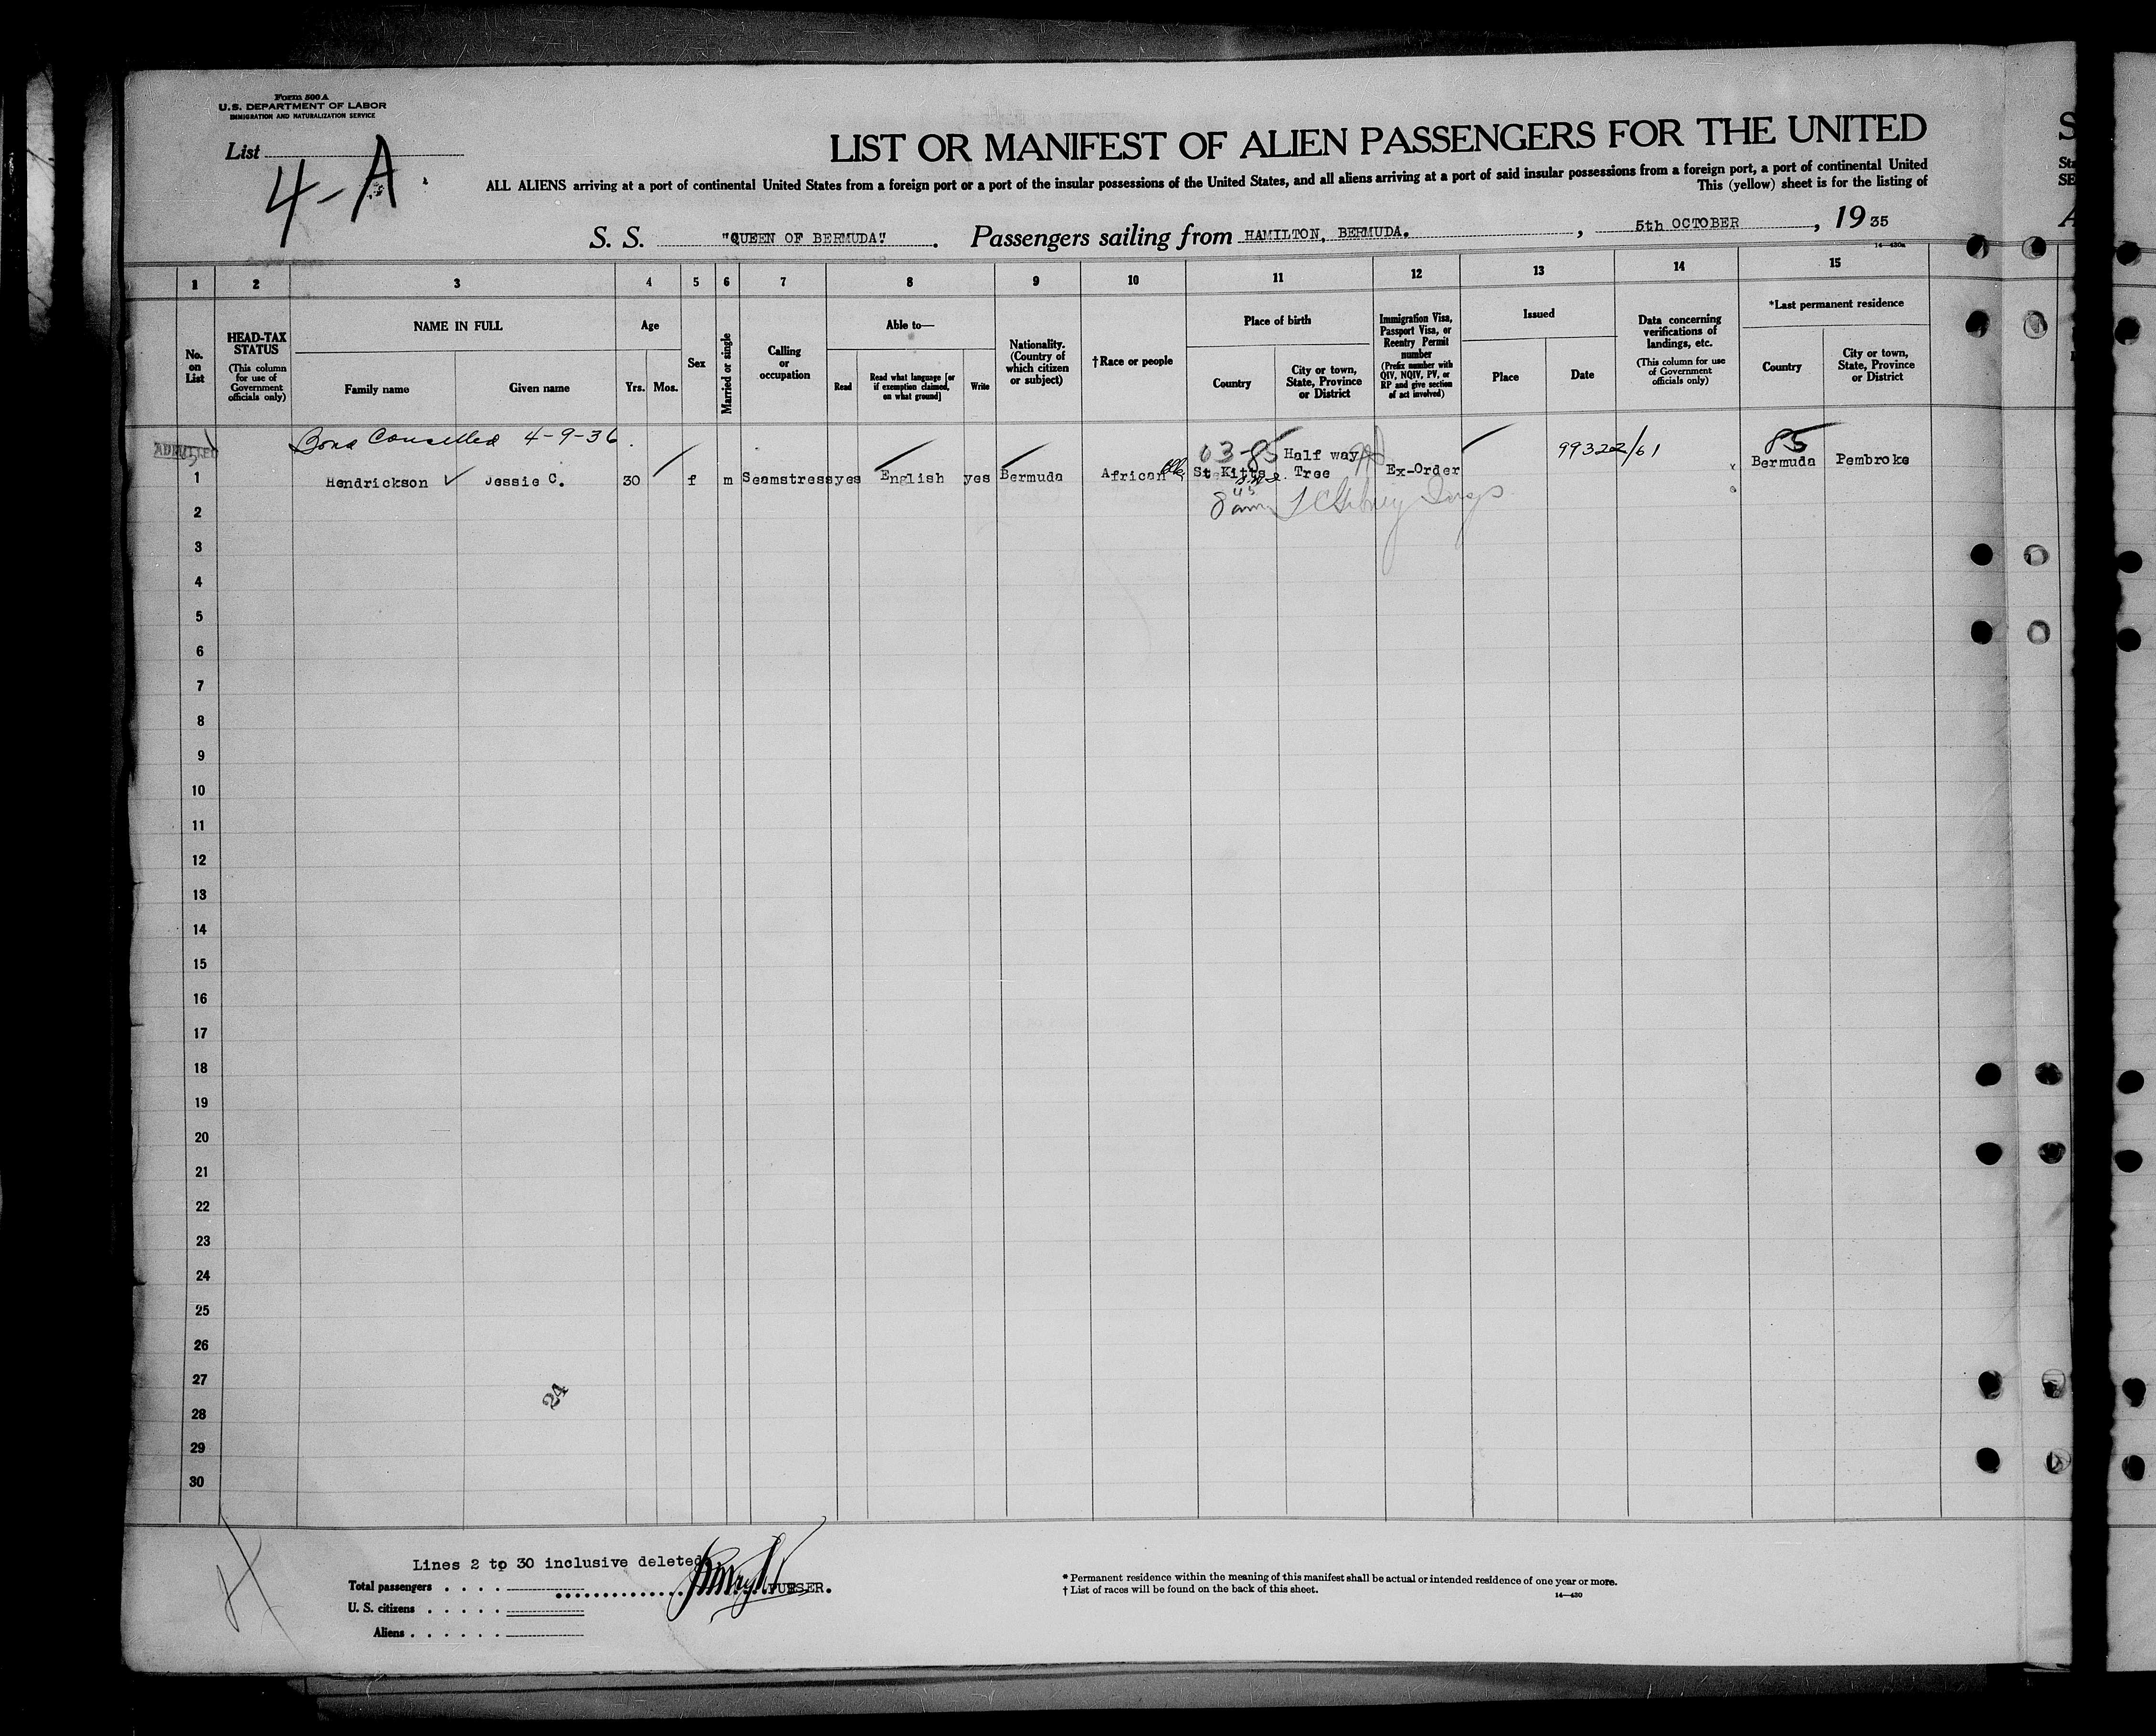 Form 500 A
U.S. DEPARTMENT OF LABOR
IMMIGRATION AND NATURALIZATION SERVICE
List
4-A.
LIST OR MANIFEST OF ALIEN PASSENGERS FOR THE UNITED
ALL ALIENS arriving at a port of continental United States from a foreign port or a port of the insular possessions of the United States, and all aliens arriving at a port of said insular possessions from a foreign port, a port of continental United
This (yellow) sheet is for the listing of
S. S. "QUEEN OF BERMUDA". Passengers sailing from HAMILTON, BERMUDA. , 5th OCTOBER , 19 35
14-430a
1 2 3 4 5 6 7 8 9 10 11 12 13 14 15
No. on List
HEAD-TAX STATUS
(This column for use of Government officials only)
NAME IN FULL
Family name Given name
Age
Yrs. Mos.
Sex
Married or single
Calling or occupation
Able to—
Read
Read what language [or if exemption claimed, on what ground]
Write
Nationality. (Country of which citizen or subject)
†Race or people
Place of birth
Country
City or town, State, Province or District
Immigration Visa, Passport Visa, or Reentry Permit number
(Prefix number with QIV, NQIV, PV, or RP and give section of act involved)
Issued
Place Date
Data concerning verifications of landings, etc.
(This column for use of Government officials only)
*Last permanent residence
Country
City or town, State, Province or District
Bond Cancelled 4-9-36.
ADMITTED
63-85 99322/61 85
1 Hendrickson Jessie C. 30 f m Seamstress yes English yes Bermuda African St Kitts Half way Tree Ex-Order Bermuda Pembroke
2
3
4
5
6
7
8
9
10
11
12
13
14
15
16
17
18
19
20
21
22
23
24
25
26
27
28
29
30
24
Lines 2 to 30 inclusive deleted
Total passengers
PURSER.
U. S. citizens
Aliens
* Permanent residence within the meaning of this manifest shall be actual or intended residence of one year or more.
† List of races will be found on the back of this sheet.
14-430